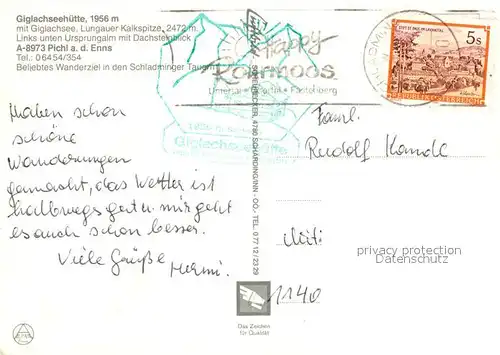 Giglachseehütte, 1956 m
mit Giglachsee, Lungauer Kalkspitze, 2472 m.
Links unten Ursprungalm mit Dachsteinblick
A-8973 Pichl a. d. Enns
Tel.: 06454/354
Beliebtes Wanderziel in den Schladminger Tauern
Happy
Rohrmoos
Giglachseehütte
5s
REPUBLIK ÖSTERREICH
Haben schon
schöne
Wanderungen
gemacht, das Wetter ist
halbwegs gut u. mir geht
es auch schon besser.
Viele Grüße
Hermi.
SCHÖRDING/INN - OÖ., TEL. 0 77 12 / 23 29
Faml.
Rudolf
1140
privacy protection
privacy protection
Das Zeichen
für Qualität